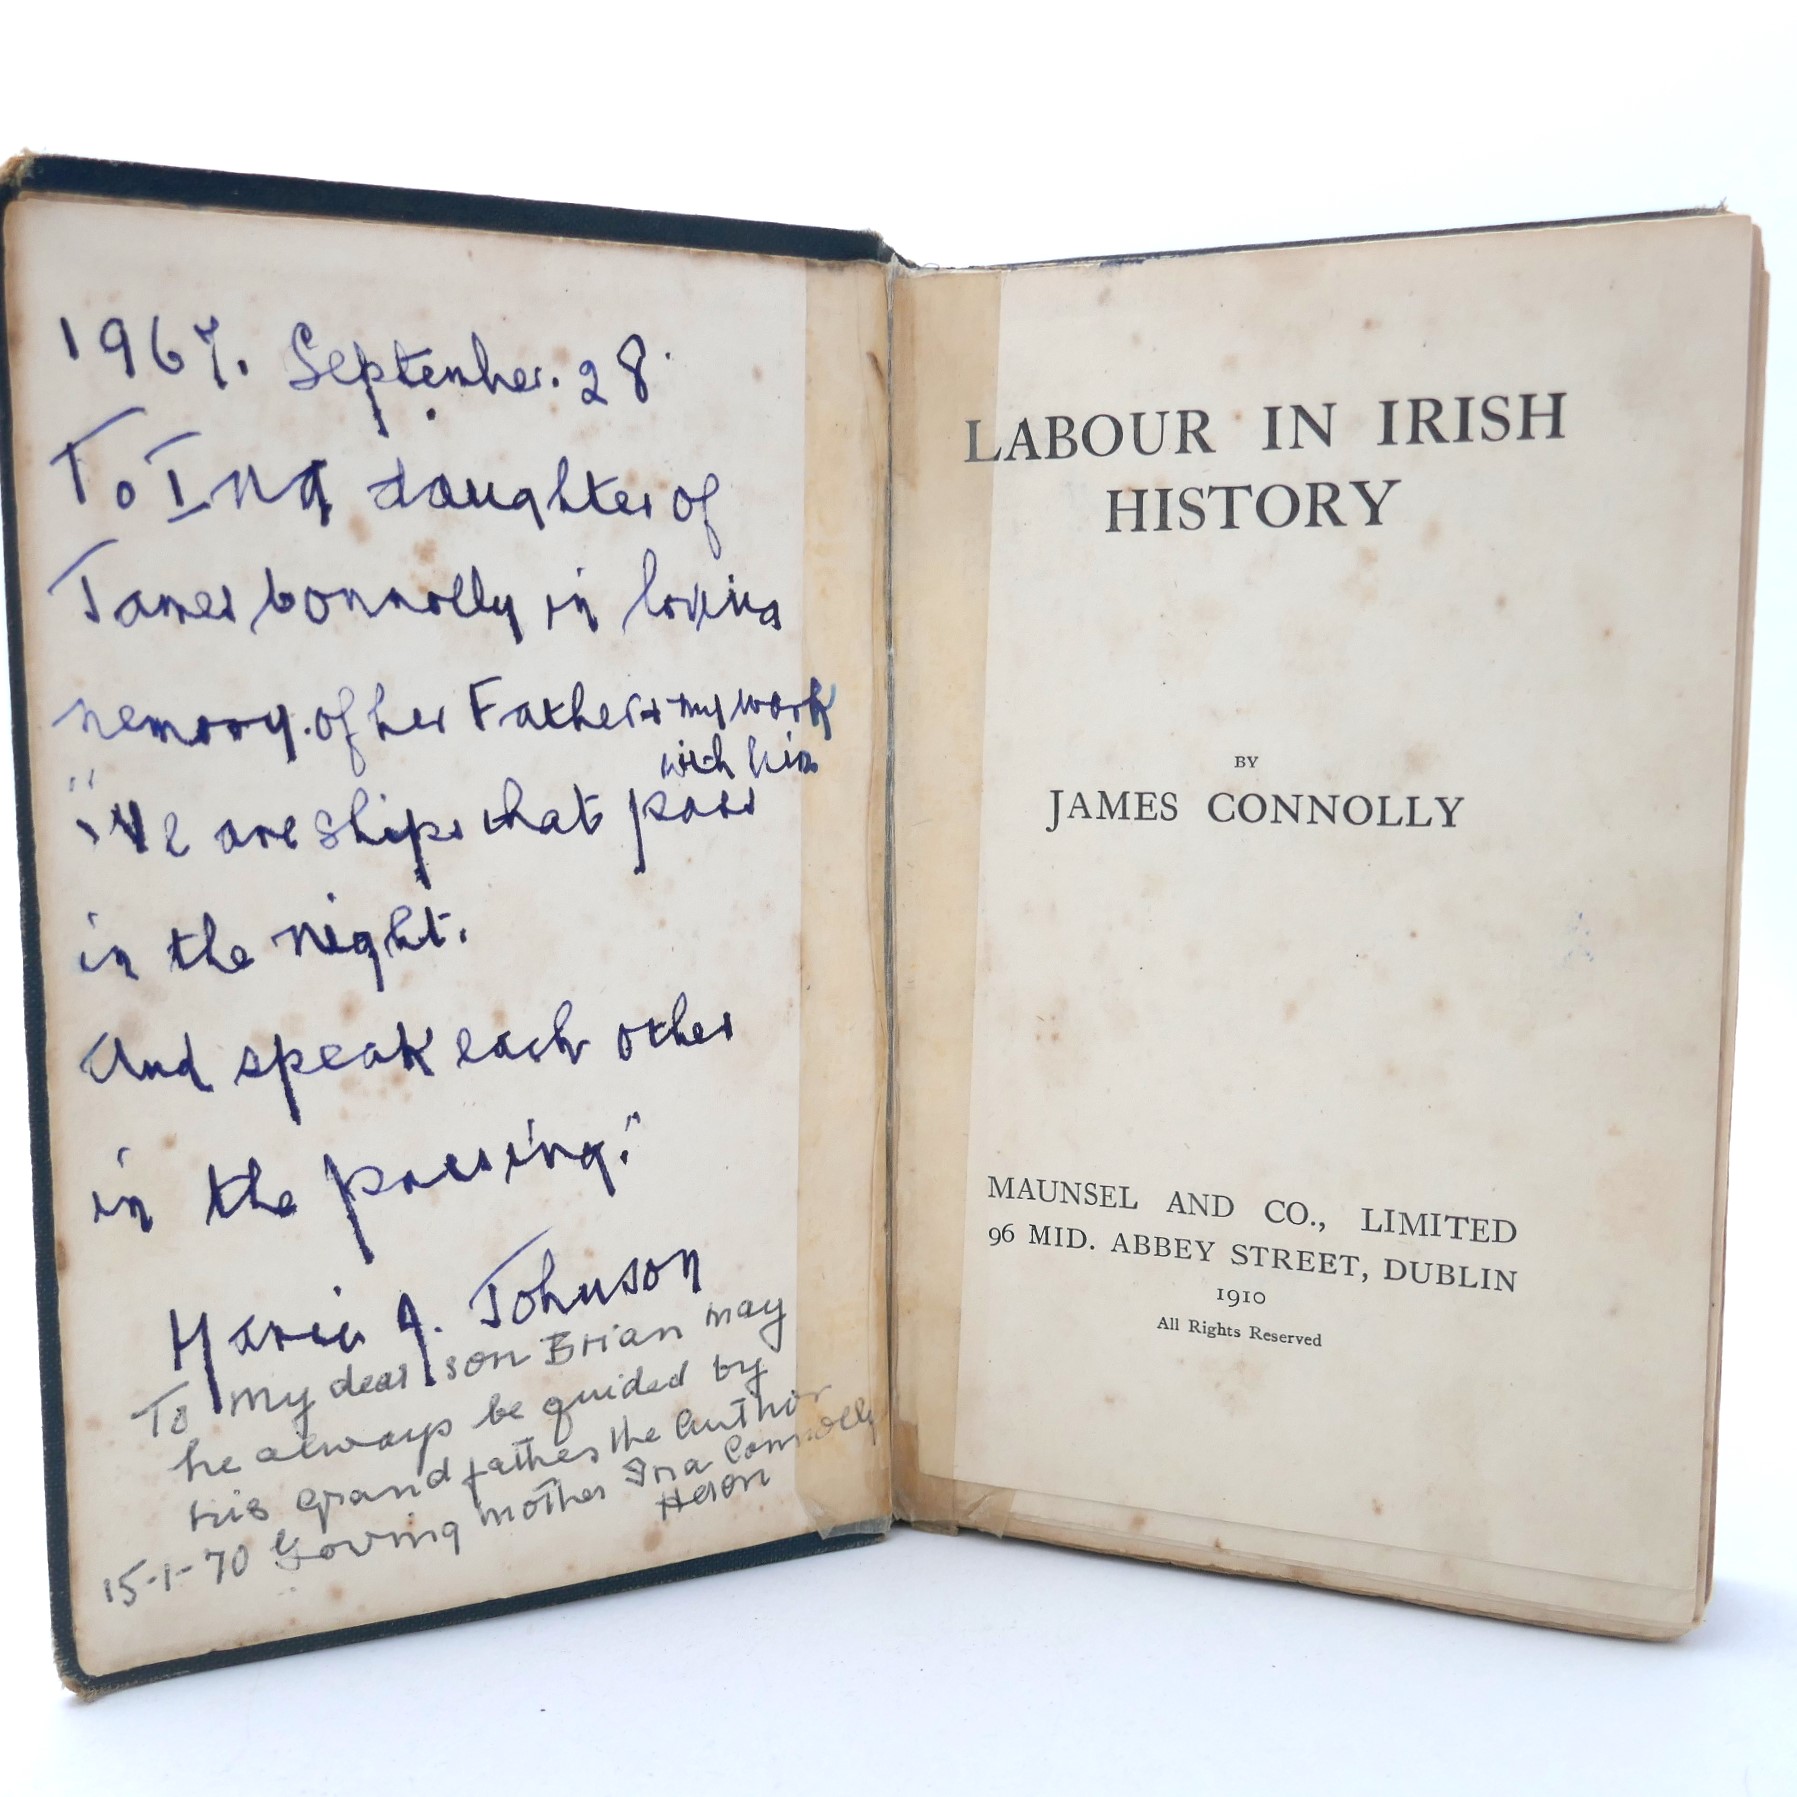 1967. September. 28.
To Ina daughter of
James Connolly in loving
memory. of her Father & my work
with him
"We are ships that pass
in the night.
And speak each other
in the passing."
Marie A. Johnson
To my dear son Brian may
he always be guided by
his grand father the Author
Loving mother Ina Connolly
Heron
15-1-70
LABOUR IN IRISH
HISTORY
BY
JAMES CONNOLLY
MAUNSEL AND CO., LIMITED
96 MID. ABBEY STREET, DUBLIN
1910
All Rights Reserved